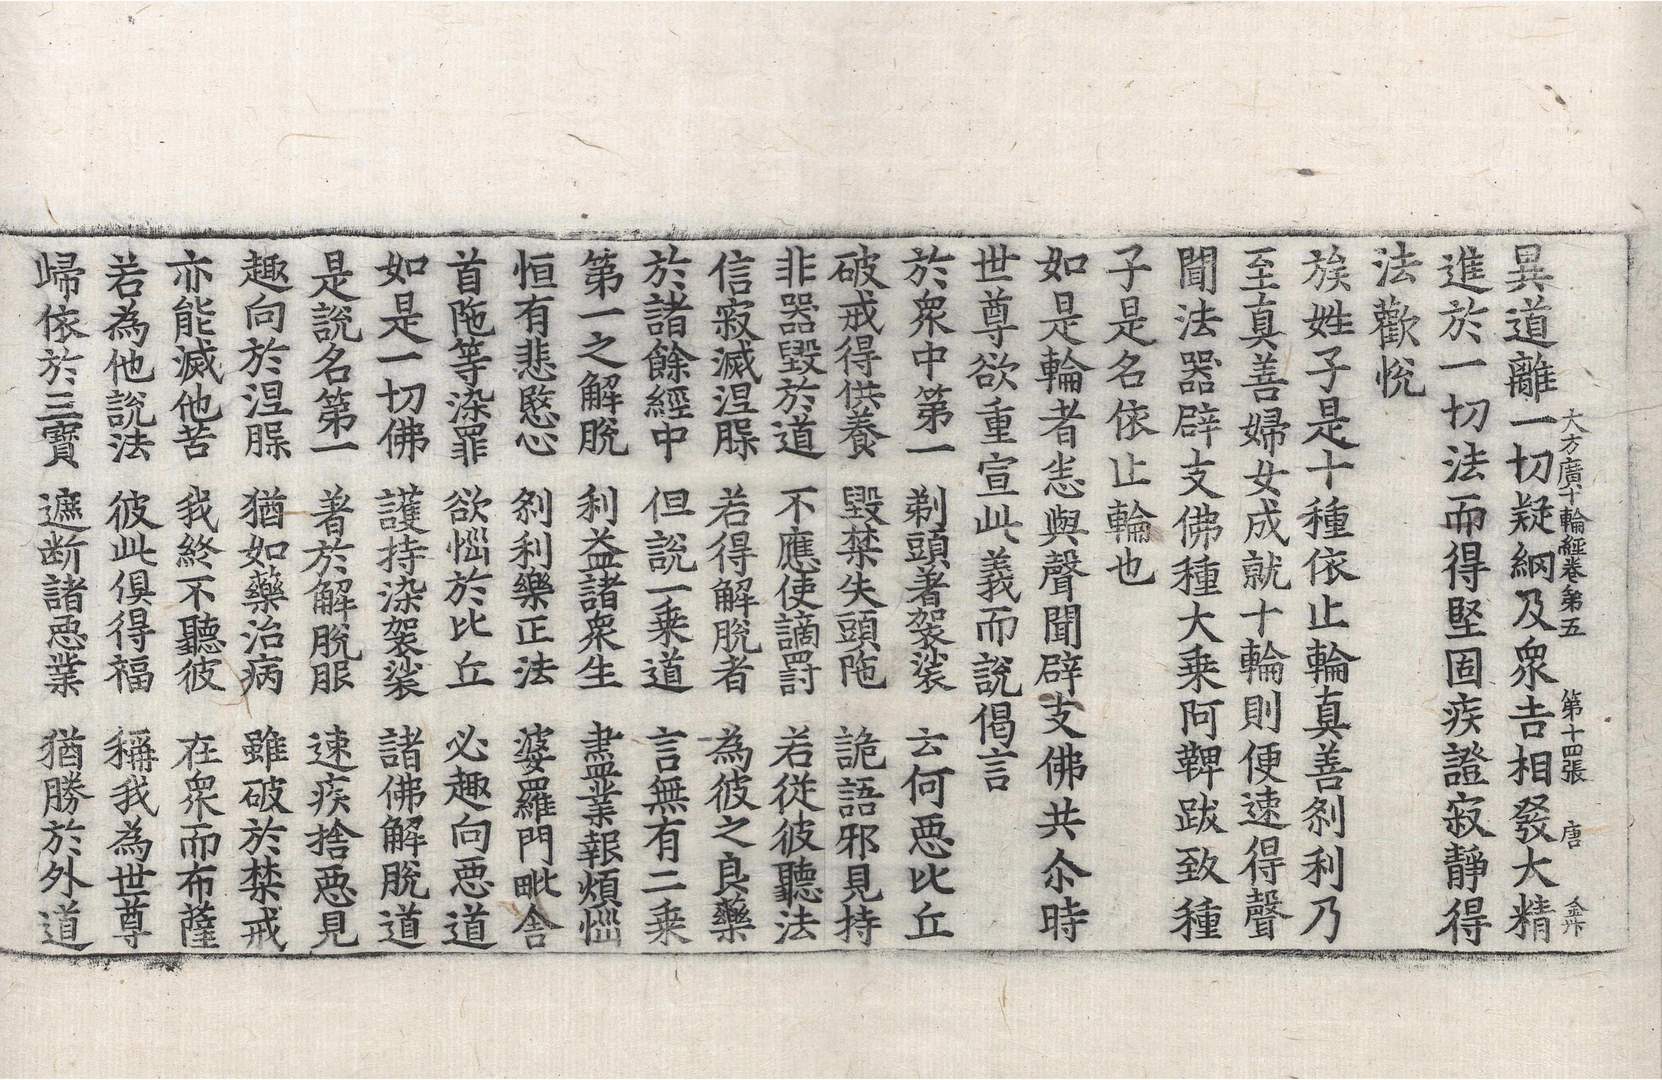 大方廣十輪經卷第五　第十四張　唐
異道離一切疑網及眾吉相發大精
進於一切法而得堅固疾證寂靜得
法歡悅
族姓子是十種依止輪真善刹利乃
至真善婦女成就十輪則便速得聲
聞法器辟支佛種大乗阿鞞跋致種
子是名依止輪也
如是輪者悉與聲聞辟支佛共尒時
世尊欲重宣此義而說偈言
於眾中第一　剃頭著袈裟　云何惡比丘
破戒得供養　毀禁失頭陁　詭語邪見持
非器毀於道　不應使讁罸　若從彼聽法
信寂滅涅槃　若得解脫者　為彼之良藥
於諸餘經中　但說一乗道　言無有二乗
第一之解脫　利益諸眾生　盡業報煩惱
恒有悲愍心　刹利樂正法　婆羅門毗舍
首陁等染罪　欲惱於比丘　必趣向惡道
如是一切佛　護持染袈裟　諸佛解脫道
是說名第一　著於解脫服　速疾捨惡見
趣向於涅槃　猶如藥治病　雖破於禁戒
亦能滅他苦　我終不聽彼　在眾而布薩
若為他說法　彼此俱得福　稱我為世尊
歸依於三寶　遮断諸惡業　猶勝於外道